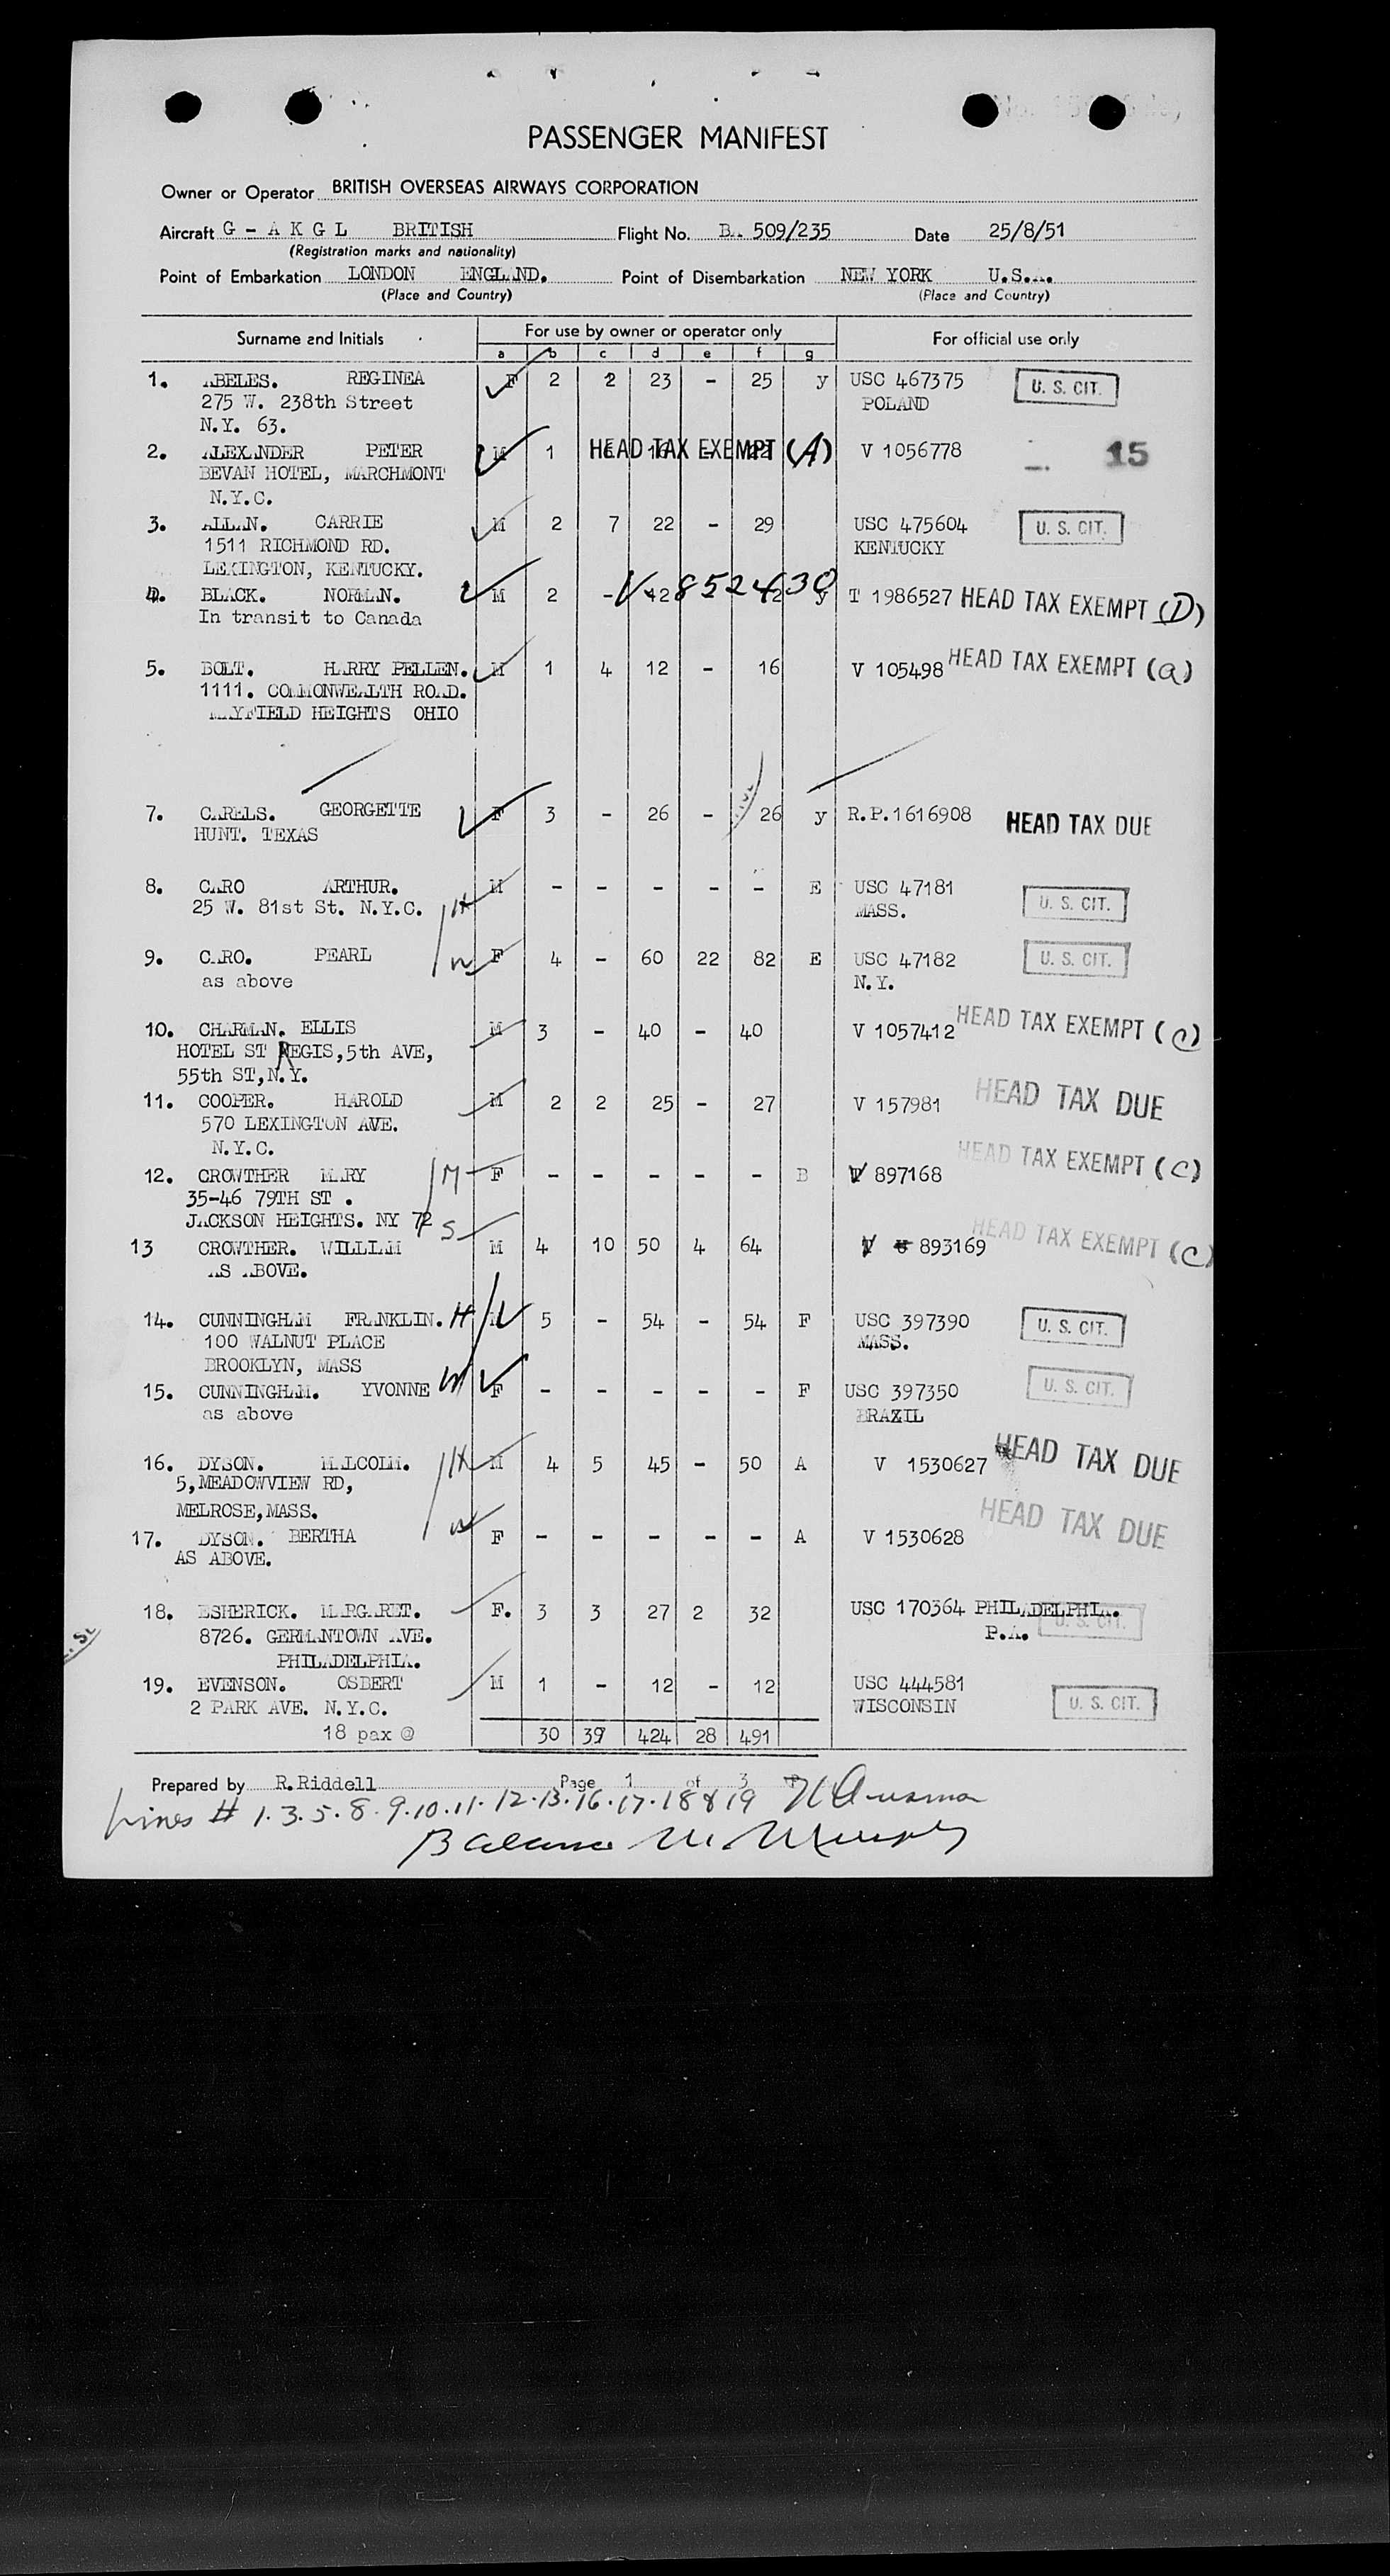 PASSENGER MANIFEST
Owner or Operator BRITISH OVERSEAS AIRWAYS CORPORATION
Aircraft G - A K G L BRITISH Flight No. BA 509/235 Date 25/8/51
(Registration marks and nationality)
Point of Embarkation LONDON ENGLAND. Point of Disembarkation NEW YORK U.S.A.
(Place and Country) (Place and Country)
Surname and Initials For use by owner or operator only For official use only
a b c d e f g
1. ABELES. REGINEA F 2 2 23 - 25 y USC 467375 U. S. CIT.
275 W. 238th Street POLAND
N.Y. 63.
2. ALEXANDER PETER M 1 HEAD TAX EXEMPT (A) V 1056778 15
BEVAN HOTEL, MARCHMONT
N.Y.C.
3. ALLAN. CARRIE M 2 7 22 - 29 USC 475604 U. S. CIT.
1511 RICHMOND RD. KENTUCKY
LEXINGTON, KENTUCKY.
4. BLACK. NORMAN. M 2 - V-852430 y T 1986527 HEAD TAX EXEMPT (D)
In transit to Canada
5. BOLT. HARRY PELLEN. M 1 4 12 - 16 V 105498 HEAD TAX EXEMPT (a)
1111. COMMONWEALTH ROAD.
MAYFIELD HEIGHTS OHIO
7. CARELS. GEORGETTE F 3 - 26 - 26 y R.P.1616908 HEAD TAX DUE
HUNT. TEXAS
8. CARO ARTHUR. H M - - - - - E USC 47181 U. S. CIT.
25 W. 81st St. N.Y.C. MASS.
9. CARO. PEARL W F 4 - 60 22 82 E USC 47182 U. S. CIT.
as above N.Y.
10. CHARMAN. ELLIS M 3 - 40 - 40 V 1057412 HEAD TAX EXEMPT (C)
HOTEL ST REGIS,5th AVE,
55th ST,N.Y.
11. COOPER. HAROLD M 2 2 25 - 27 V 157981 HEAD TAX DUE
570 LEXINGTON AVE.
N.Y.C.
12. CROWTHER MARY M F - - - - - B V 897168 HEAD TAX EXEMPT (C)
35-46 79TH ST .
JACKSON HEIGHTS. NY 72
13 CROWTHER. WILLIAM S M 4 10 50 4 64 V 893169 HEAD TAX EXEMPT (C)
AS ABOVE.
14. CUNNINGHAM FRANKLIN. H 5 - 54 - 54 F USC 397390 U. S. CIT.
100 WALNUT PLACE MASS.
BROOKLYN, MASS
15. CUNNINGHAM. YVONNE W F - - - - - F USC 397350 U. S. CIT.
as above BRAZIL
16. DYSON. MALCOLM. H M 4 5 45 - 50 A V 1530627 HEAD TAX DUE
5,MEADOWVIEW RD,
MELROSE,MASS.
17. DYSON. BERTHA W F - - - - - A V 1530628 HEAD TAX DUE
AS ABOVE.
18. ESHERICK. MARGARET. F. 3 3 27 2 32 USC 170364 PHILADELPHIA. U. S. CIT.
8726. GERMANTOWN AVE. P.A.
PHILADELPHIA.
19. EVENSON. OSBERT M 1 - 12 - 12 USC 444581 U. S. CIT.
2 PARK AVE. N.Y.C. WISCONSIN
18 pax @ 30 39 424 28 491
Prepared by R.Riddell Page 1 of 3
Lines # 1.3.5.8.9.10.11.12.13.16.17.18 & 19
Balance